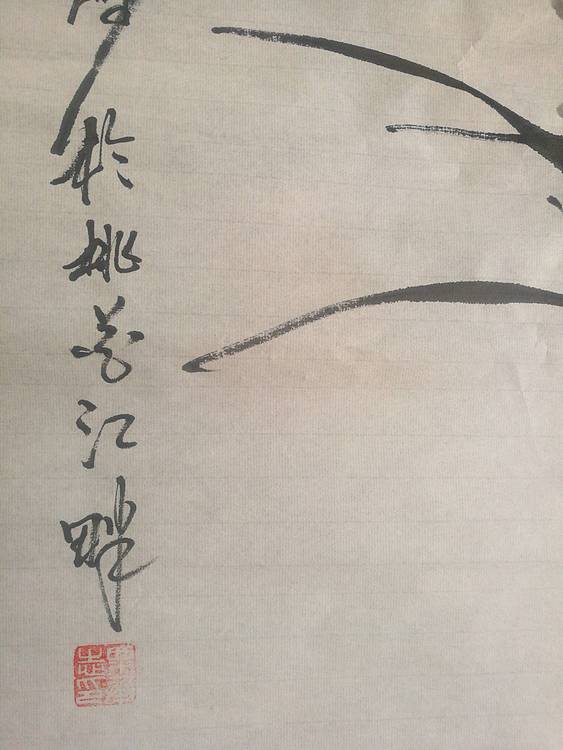 於桃花江畔